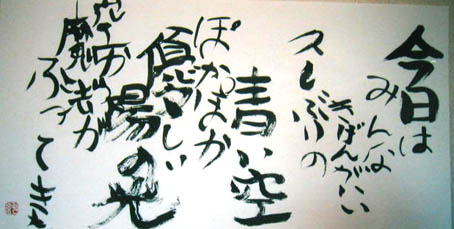 今日は
みんな
きげんがいい
久しぶりの
青い空
ぽかぽか
優しい
陽の光
空から
魔法が
ふってきた